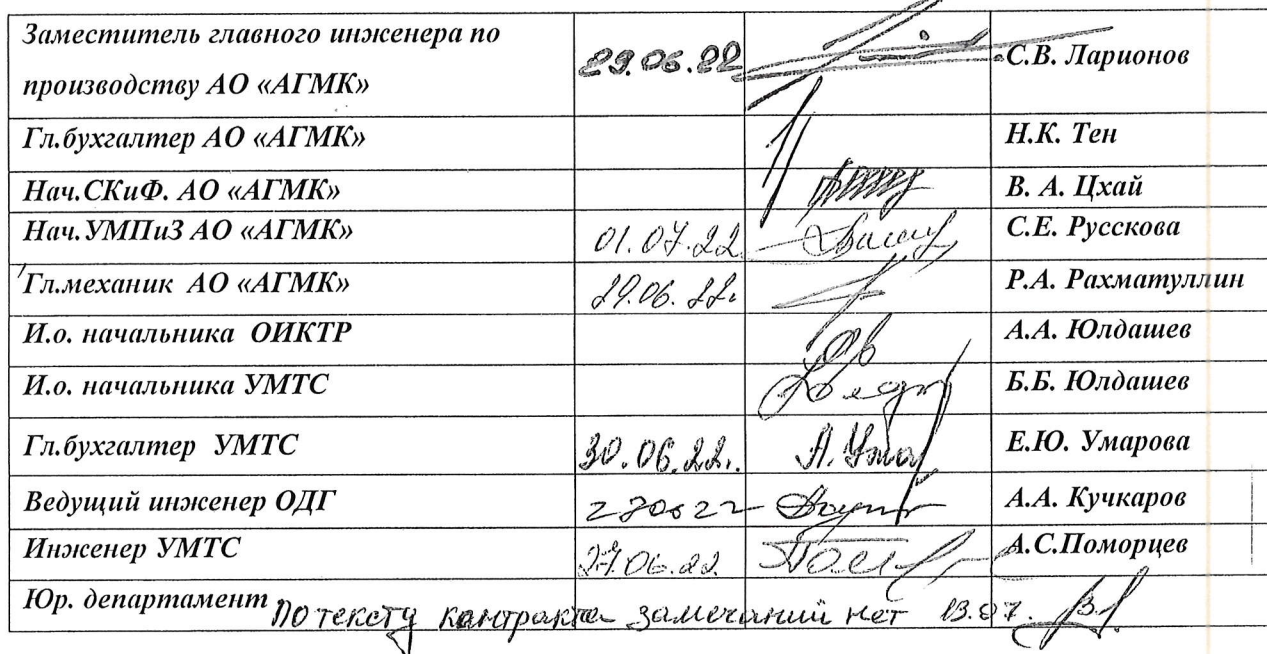 Заместитель главного инженера по
производству АО «АГМК» 29.06.22 С.В. Ларионов
Гл.бухгалтер АО «АГМК» Н.К. Тен
Нач.СКиФ. АО «АГМК» В. А. Цхай
Нач.УМПиЗ АО «АГМК» 01.07.22 С.Е. Русскова
Гл.механик АО «АГМК» 29.06.22. Р.А. Рахматуллин
И.о. начальника ОИКТР А.А. Юлдашев
И.о. начальника УМТС Б.Б. Юлдашев
Гл.бухгалтер УМТС 30.06.22. Е.Ю. Умарова
Ведущий инженер ОДГ 270622 А.А. Кучкаров
Инженер УМТС 27.06.22. А.С.Поморцев
Юр. департамент По тексту контракта замечаний нет 13.07.